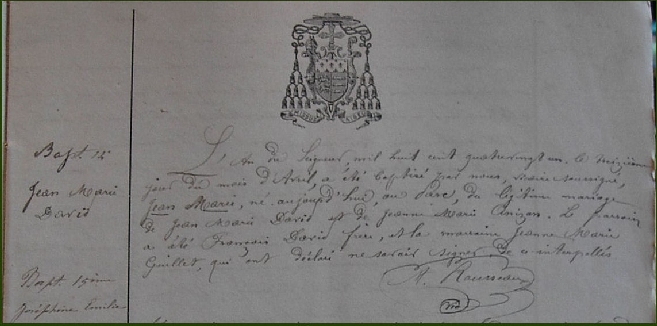 Bapt. 12
Jean Marie
David
L'An du Seigneur, mil huit cent quatrevingt un. Le treizième
jour du mois d'Avril, a été baptisé par nous, Vicaire soussigné,
Jean Marie, né aujourd'hui, au Parc, du légitime mariage
de Jean Marie David et de Jeanne Marie Anizon. Le parrain
a été François David frère, et la marraine Jeanne Marie
Guillet, qui ont déclaré ne savoir signer de ce interpellés
Bapt. 15
Joséphine Emilie